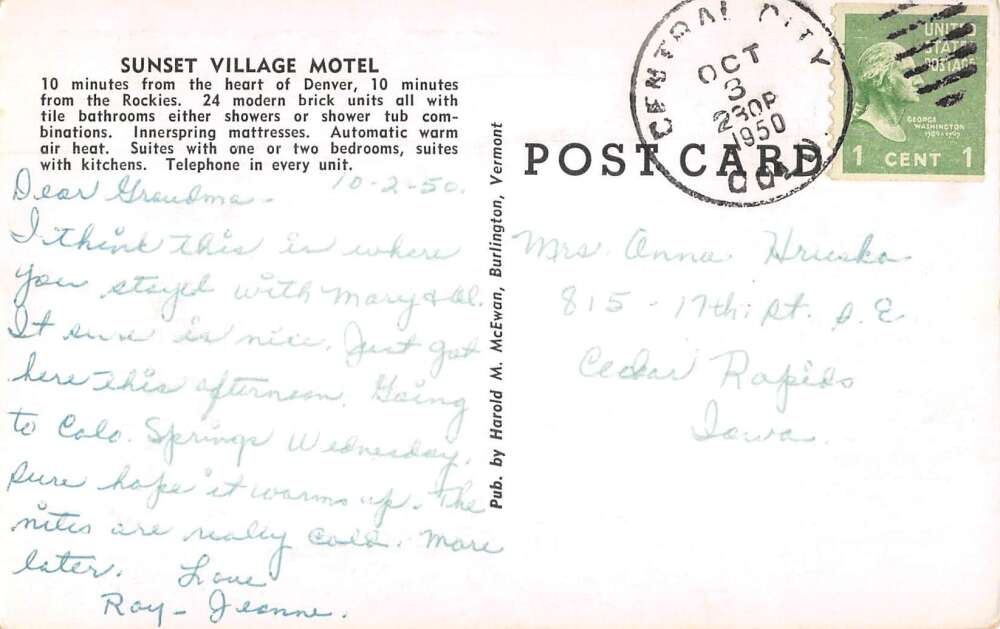 SUNSET VILLAGE MOTEL
10 minutes from the heart of Denver, 10 minutes
from the Rockies. 24 modern brick units all with
tile bathrooms either showers or shower tub com-
binations. Innerspring mattresses. Automatic warm
air heat. Suites with one or two bedrooms, suites
with kitchens. Telephone in every unit.
10-2-50.
Dear Grandma-
I think this is where
you stayed with Mary & Al.
It sure is nice. Just got
here this afternoon. Going
to Colo. Springs Wednesday.
sure hope it warms up. The
nites are really cold. More
later. Love
Roy - Jeanne.
Pub. by Harold M. McEwan, Burlington, Vermont
POST CARD
CENTRAL CITY
OCT
3
230P
1950
COLO.
UNITED
STATES
POSTAGE
GEORGE
WASHINGTON
1789-1797
1 CENT 1
Mrs. Anna Hruska
815 - 17th. St. S.E.
Cedar Rapids
Iowa.